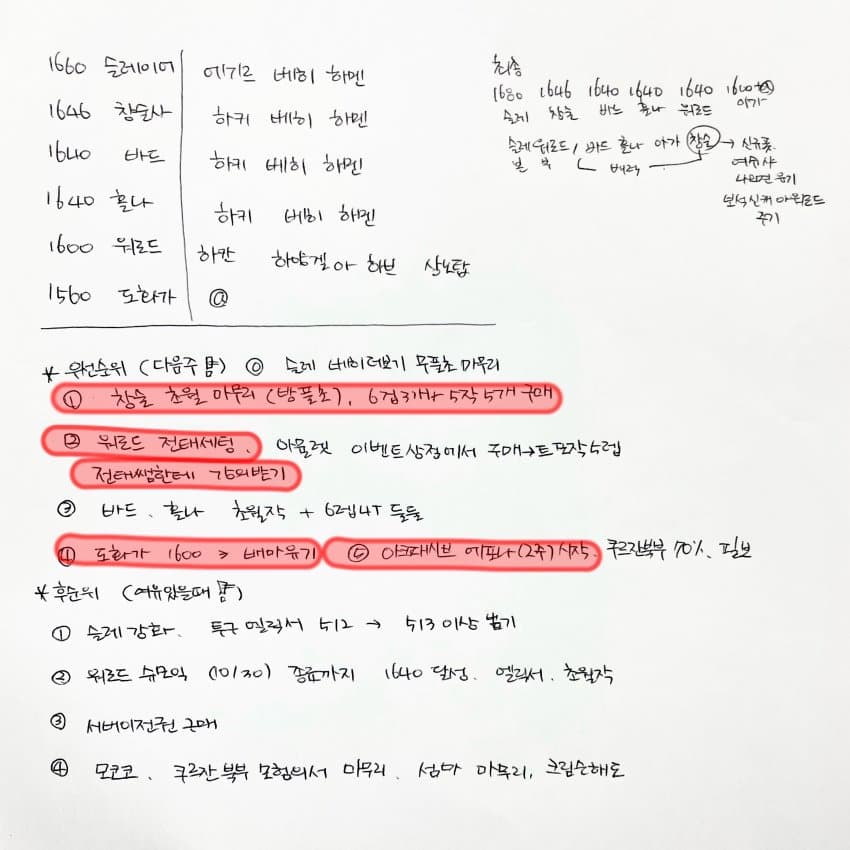 1660 슬레이어 에기르 베히 하멘
1646 창술사 하키 베히 하멘
1640 바드 하키 베히 하멘
1640 홀나 하키 베히 하멘
1600 워로드 하칸 하양겔아 하브 상노탑
1560 도화가 @
최종
1680 1646 1640 1640 1640 1600+@
슬레 창술 바드 홀나 워로드 아가
슬레 워로드 / 바드 홀나 아가 창술 → 신규풋
본 부 배럭 여술사
나오면 옮기
보석 신캐 아 워로드
주기
* 우선순위 (다음주 月) ⓪ 슬레 베히더보기 무플초 마무리
① 창술 초월 마무리 (방풀초), 6겁3개나 5작 5개 구매
② 워로드 전태세팅. 아뮬렛 이벤트상점에서 구매→트포작 5렙
전태쌤한테 강의받기
③ 바드. 홀나 초월작 + 6겁4T 둘둘
④ 도화가 1600 > 배마유기 ⑤ 아크패시브 에포나(2주) 시작. 쿠르잔북부 70%. 필보
* 후순위 (여유있을때 月)
① 슬레강화. 투구 엘릭서 512 → 513 이상 넘기
② 워로드 슈모익 (10/30) 종료까지 1640 달성. 엘릭서. 초월작
③ 서버이전권 구매
④ 모코코. 쿠르잔 북부 모험의서 마무리. 섬마 마무리, 크림손해도